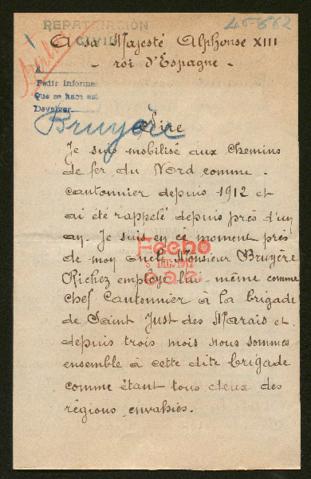 REPATRIACIÓN
CIVIL
45.662
A sa Majesté Alphonse XIII
- roi d'Espagne -
Pedir informe
Que se haga est
Devolver
Bruyère
Sire
Je suis mobilisé aux chemins
de fer du Nord comme
cantonnier depuis 1912 et
ai été rappelé depuis près d'un
an. Je suis en ce moment près
de mon chef Monsieur Bruyère
Richez employé lui même comme
chef cantonnier à la brigade
de Saint Just des Marais et
depuis trois mois nous sommes
ensemble à cette dite brigade
comme étant tous deux des
régions envahies.
Fecho